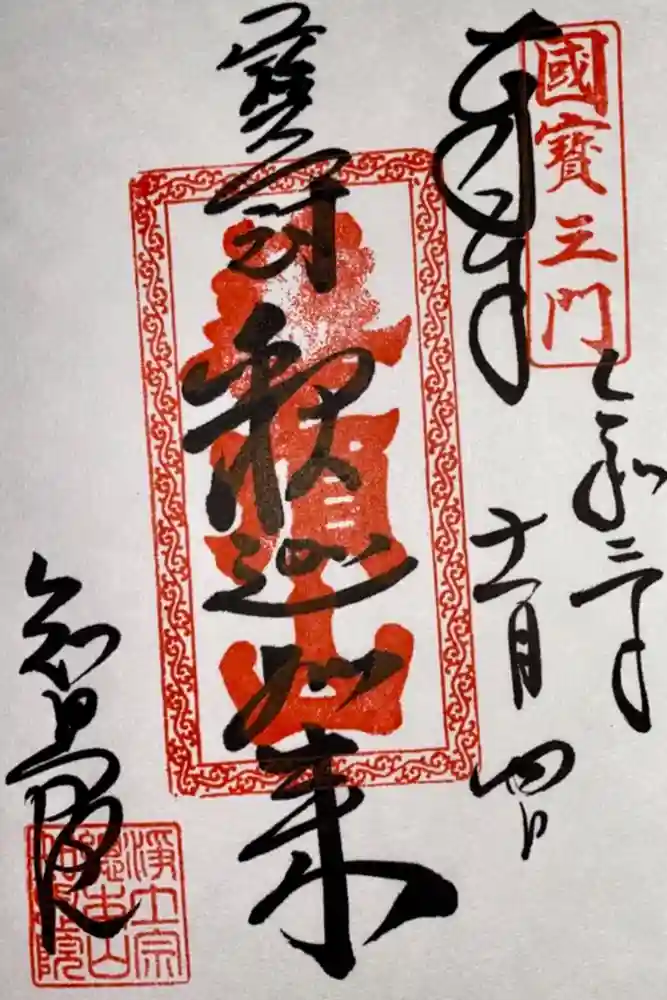 國寶三門
奉拝
令和三年
十一月四日
寶冠釈迦如来
華頂山
知恩院
淨土宗
總本山
知恩院